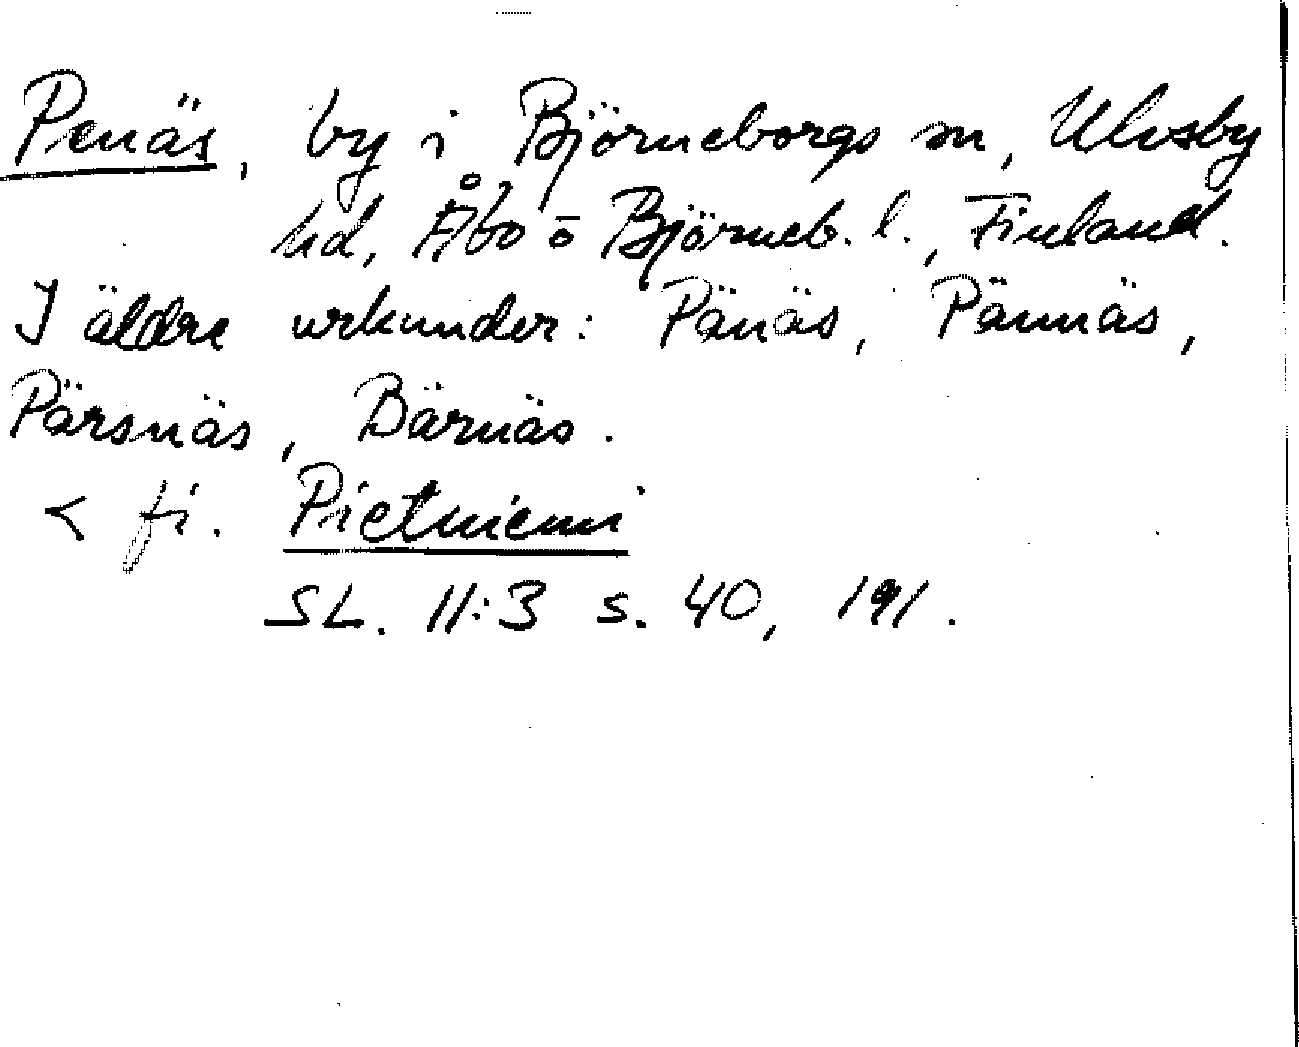 Penäs, by i Björneborgs sn, Ulvsby
hd, Åbo o Björneb. l., Finland.
I äldre urkunder: Pänäs, Pännäs,
Pärsnäs, Bärnäs.
< fi. Pietniemi
SL. 11:3 s. 40, 191.